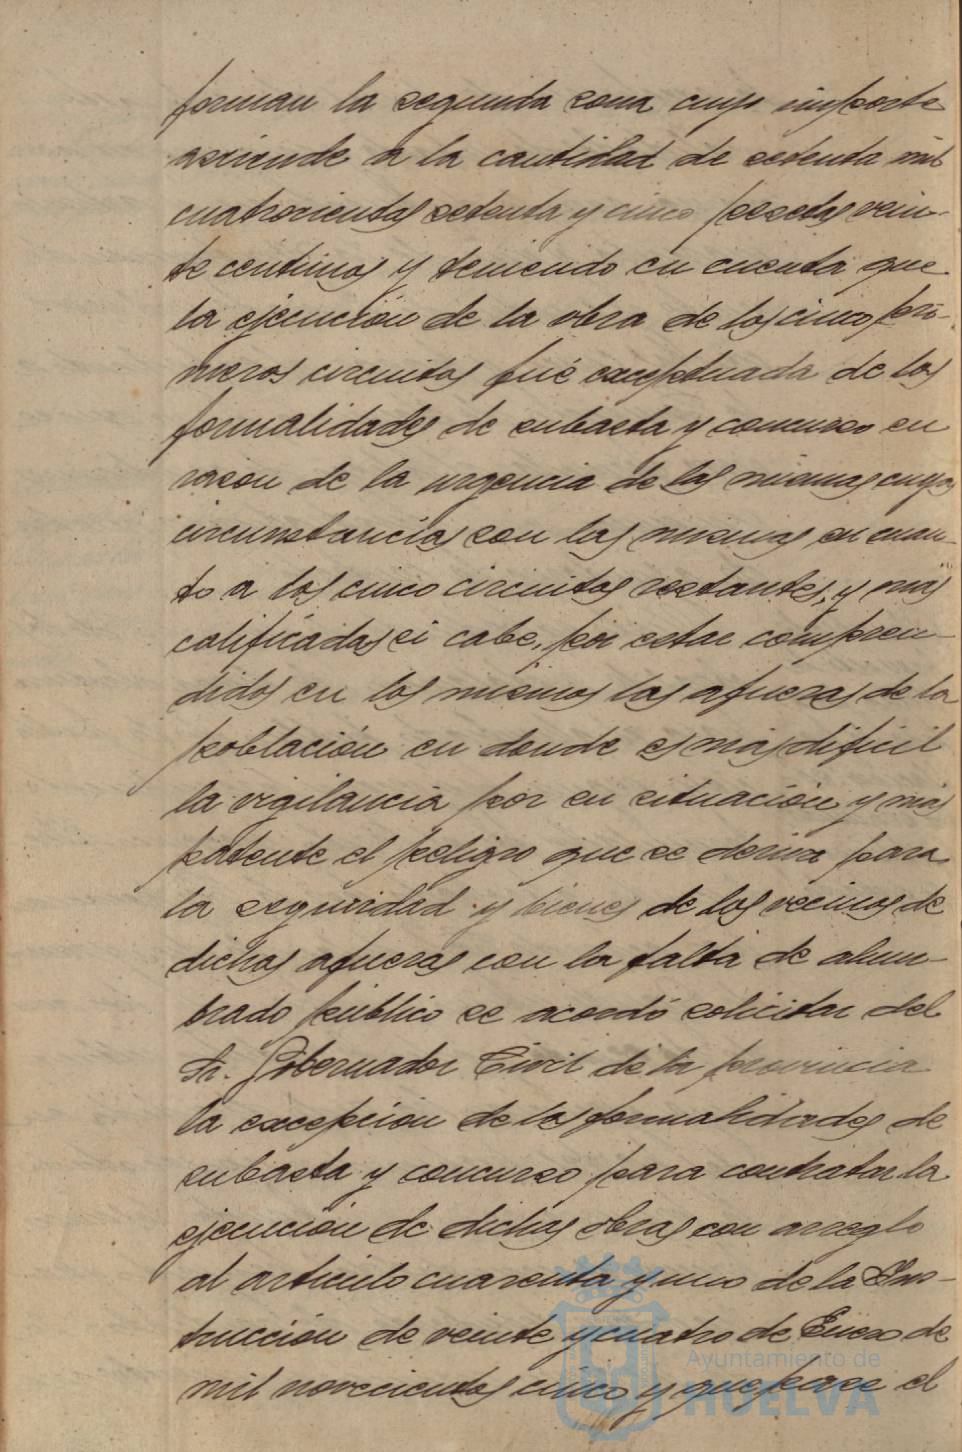 forman la segunda zona cuyo importe
asciende a la cantidad de setenta mil
cuatrocientas setenta y cinco pesetas vein-
te centimos y teniendo en cuenta que
la ejecución de la obra de los cinco pri-
meros circuitos fué exceptuada de las
formalidades de subasta y concurso en
razon de la urgencia de las mismas cuyas
circunstancias son las mismas en cuan-
to a los cinco circuitos restantes, y más
calificadas si cabe, por estar compren-
didos en los mismos las afueras de la
población en donde es más difícil
la vigilancia por su situación y más
patente el peligro que se deriva para
la seguridad y bienes de los vecinos de
dichas afueras con la falta de alum-
brado público se acordó solicitar del
Sr. Gobernador Civil de la provincia
la excepción de las formalidades de
subasta y concurso para contratar la
ejecución de dichas obras con arreglo
al artículo cuarenta y uno de la Ins-
trucción de veinte y cuatro de Enero de
mil novecientos cinco y que pase el
Ayuntamiento de
HUELVA